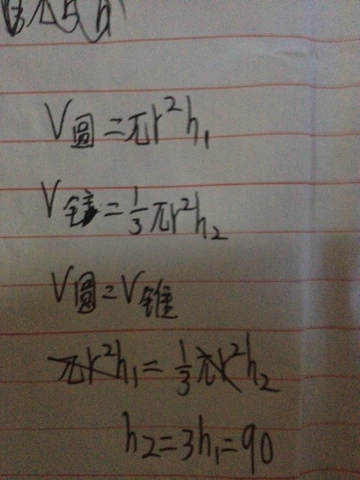 V圆=πr²h₁
V锥=⅓πr²h₂
V圆=V锥
πr²h₁=⅓πr²h₂
h₂=3h₁=90